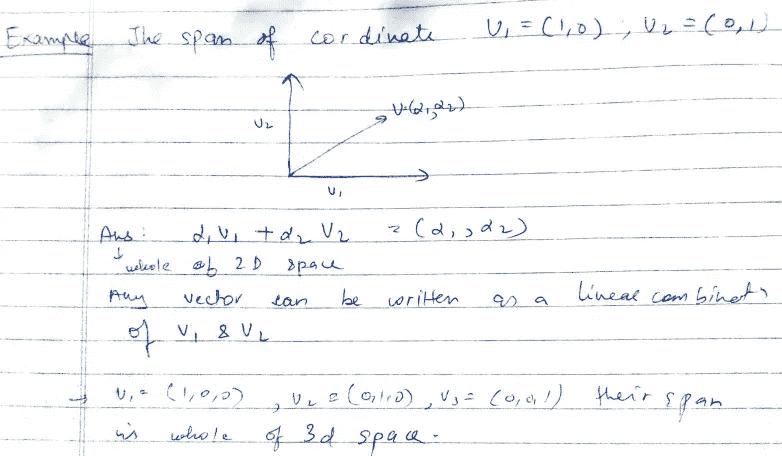 Example The span of cordinate V₁ = (1,0) , V₂ = (0,1)
V=(α₁,α₂)
V₂
V₁
Ans: α₁V₁ + α₂ V₂ = (α₁, α₂)
↓ whole of 2D space
Any vector can be written as a linear combinatⁿ
of V₁ & V₂
→ V₁ = (1,0,0) , V₂ = (0,1,0) , V₃ = (0,0,1) their span
is whole of 3d space.